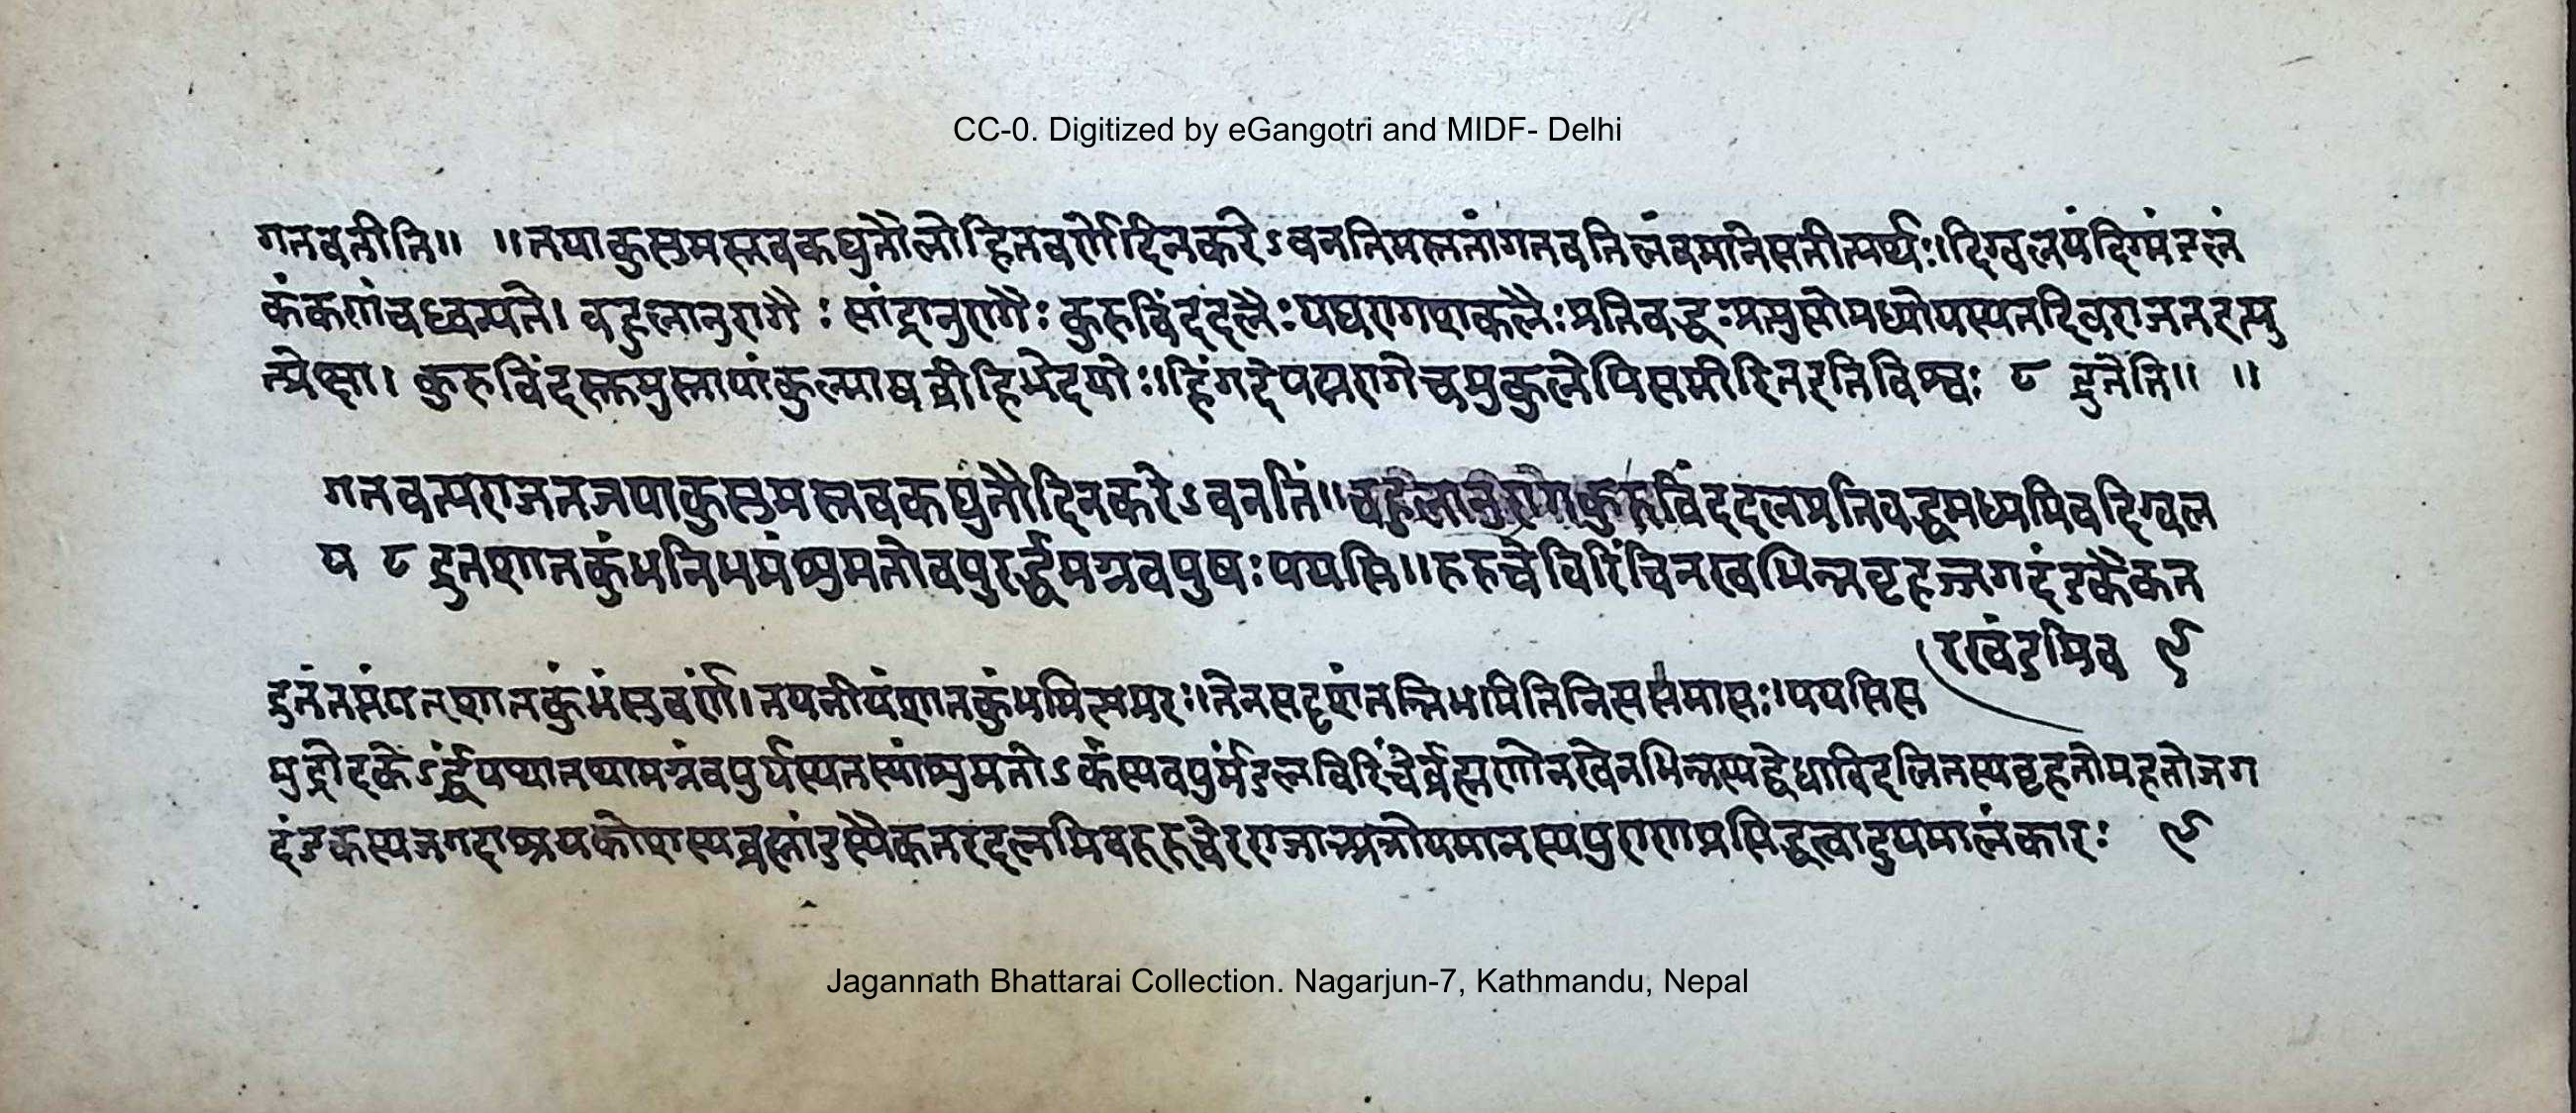 CC-0. Digitized by eGangotri and MIDF- Delhi
गतवतीति॥ ॥नपाकुसुमस्तवकद्युतौलोहितवर्णेदिनकरेऽवनतिमस्तनांगतवतिलंवमानेसतीत्यर्थः॥दिग्वलयंदिग्मंडलं
कंकणांचध्वन्यते। वहुलानुरागै : सांद्रानुरागैः कुरुविंददलैःपद्मरागशकलैःप्रतिवद्धःप्रत्युप्तोमध्योयस्यतदिवराजतइत्यु
त्प्रेक्षा। कुरुविंदस्तुमुस्तायांकुल्माषव्रीहिभेदयोः॥हिंगदेपद्मरागेचमुकुलेपिसमीरितइतिविश्वः ८ द्रुतेति॥ ॥
गतवत्यराजतजपाकुसुमस्तवकद्युतौदिनकरेऽवनतिं॥वहुलानुरागकुरुविंददलप्रतिवद्धमध्यमिवदिग्वल
यं ८ द्रुतशातकुंभनिभमंशुमतोवपुरर्द्धमग्नवपुषःपयसि॥रुरुचेविरिंचिनखभिन्नवृहज्जगदंडकैकत
रखंडमिव ९
द्रुतंतप्तंयत्शातकुंभंसुवर्णं।तपनीयंशातकुंभमित्यमरः॥तेनसदृशंतन्निभमितिनित्यसमासः॥पयसिस
मुद्रोदकेऽर्द्धंयथातथामग्नंवपुर्यस्यतस्यांशुमतोऽर्कस्यवपुर्मंडलंविरिंचेर्ब्रह्मणोनखेनभिन्नस्यद्वेधाविदलितस्यवृहतोमहतोजग
दंडकस्यजगदाश्रयकोशस्यब्रह्मांडस्यैकतरदलमिवरुरुचेरराजात्रप्रतीयमानस्यपुराणप्रसिद्धत्वादुपमालंकारः ९
Jagannath Bhattarai Collection. Nagarjun-7, Kathmandu, Nepal